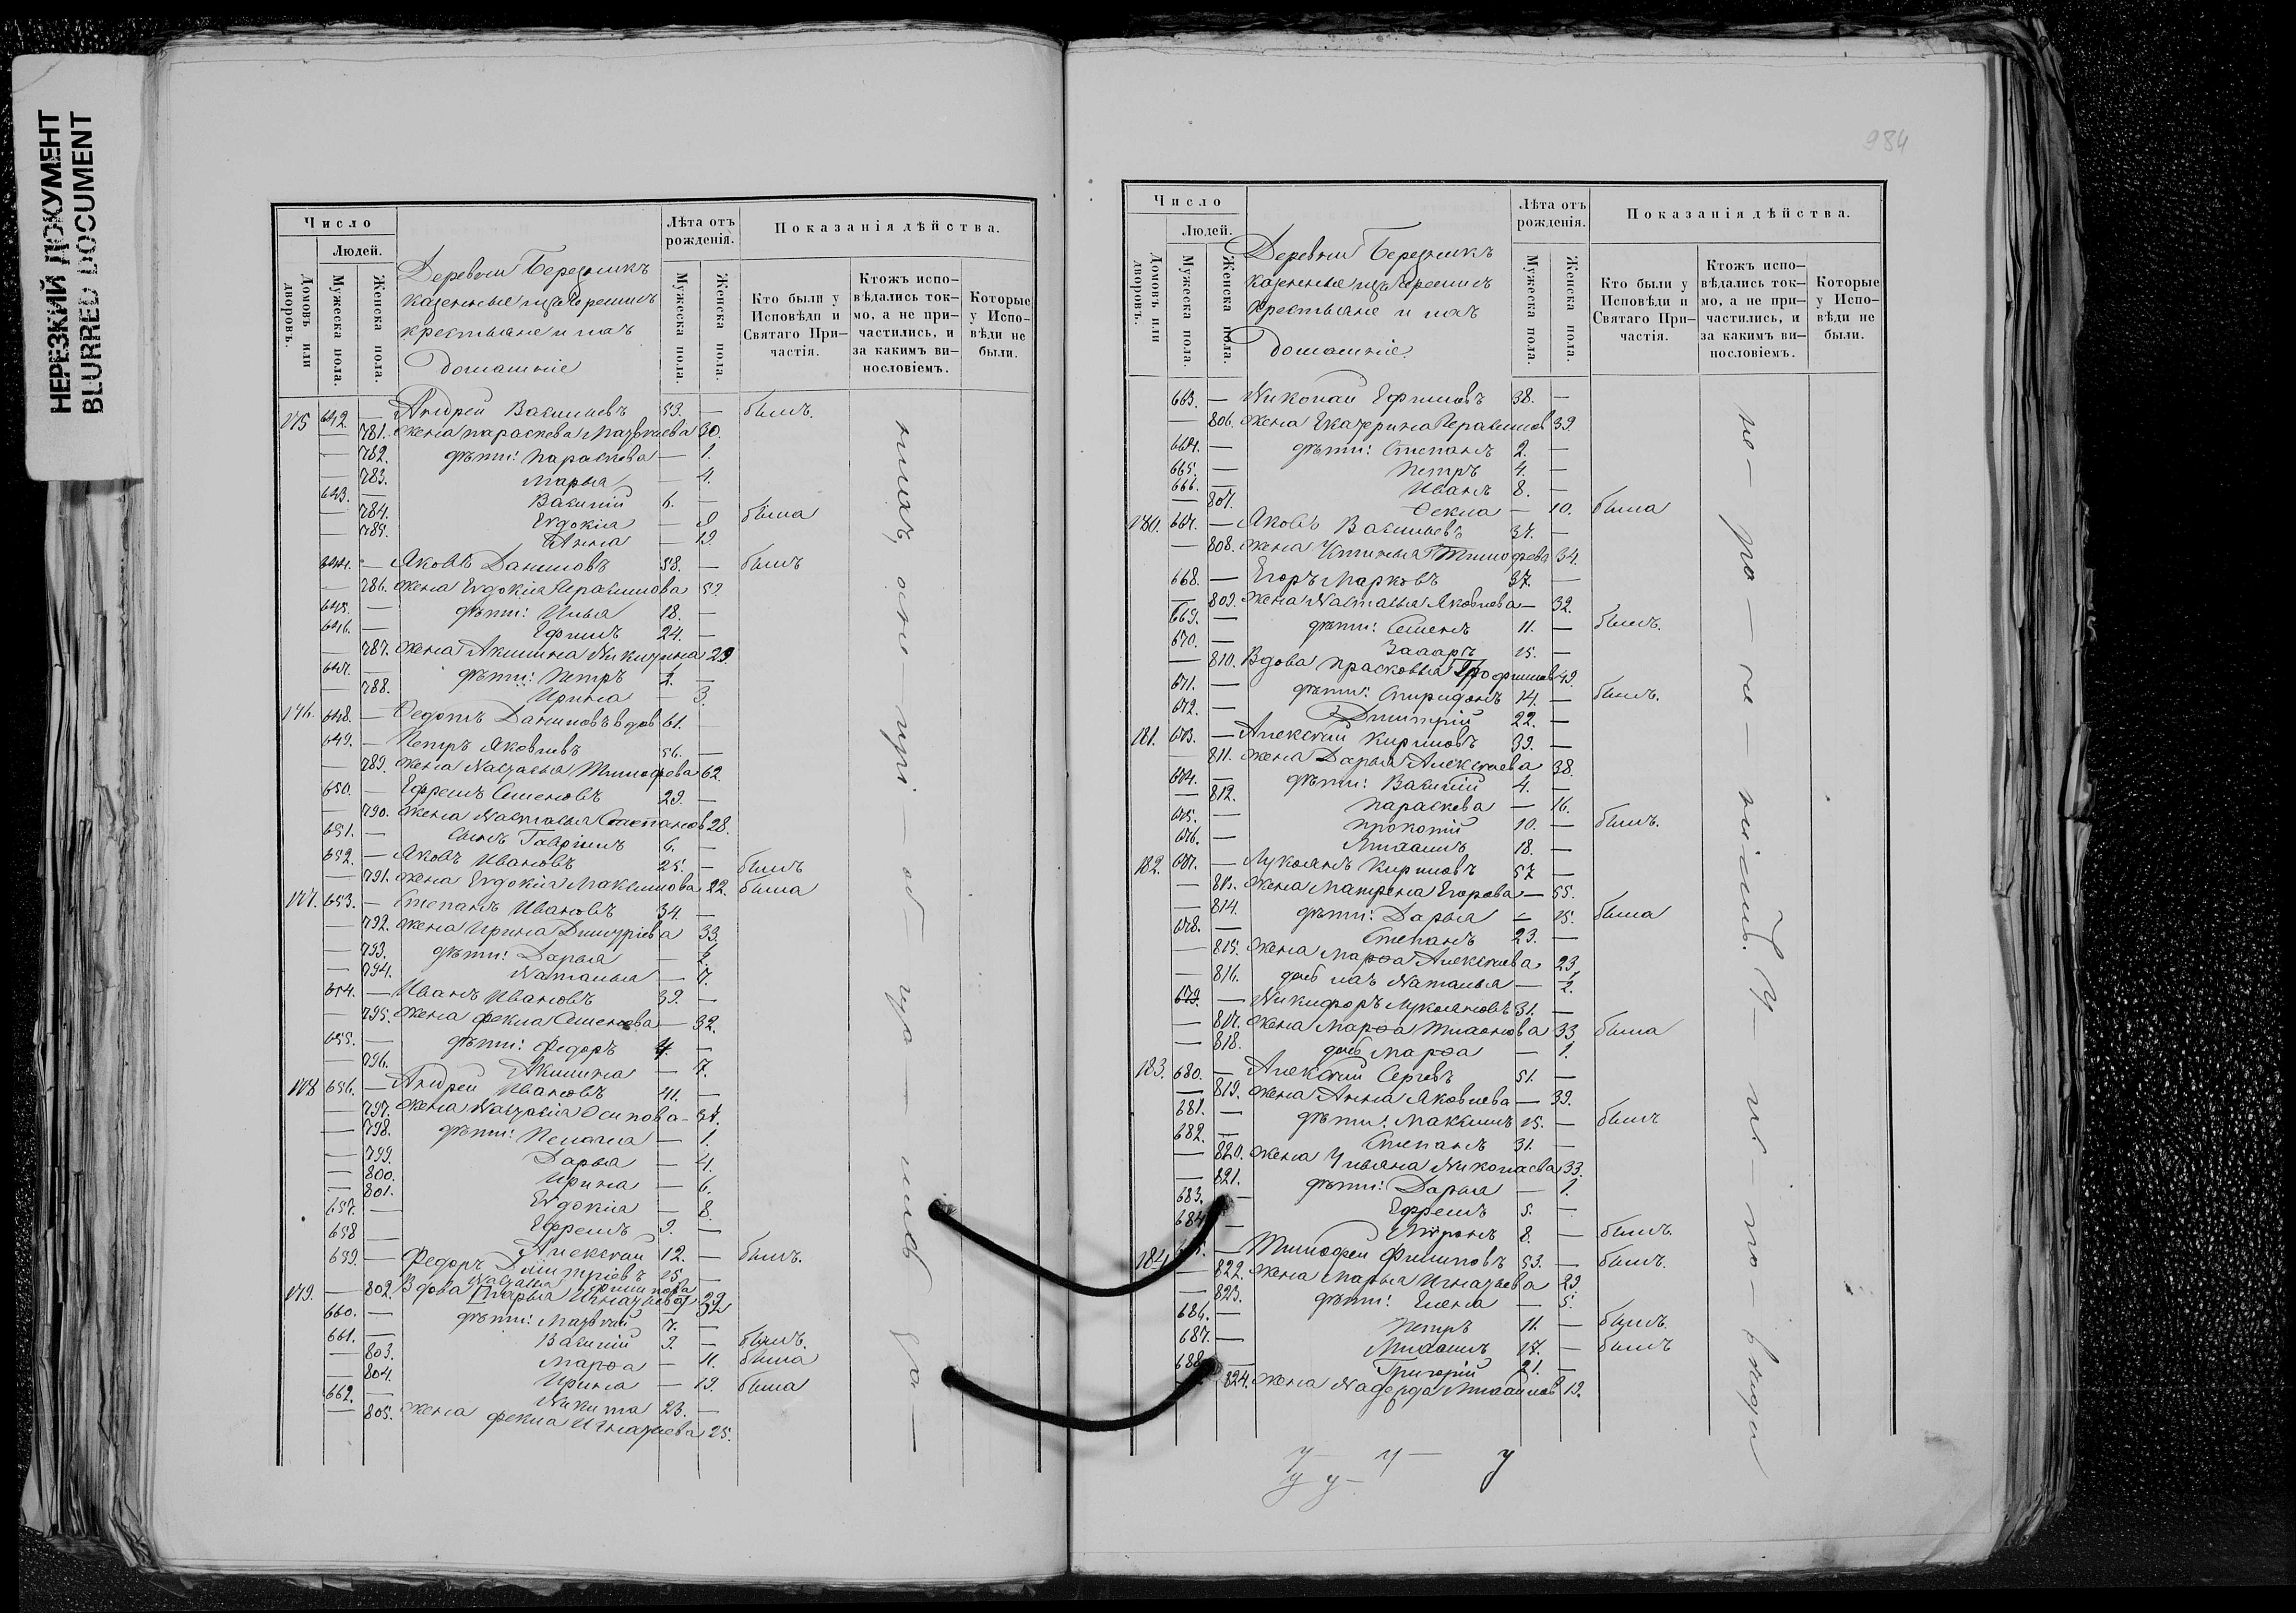 НЕРЕЗКИЙ ДОКУМЕНТ
BLURRED DOCUMENT
Число
Людей.
Домовъ или дворовъ.
Мужеска пола.
Женска пола.
Деревни Березникъ
казенные
крестьяне и ихъ
домашніе
Лѣта отъ рожденія.
Мужеска пола.
Женска пола.
Показанія дѣйства.
Кто были у Исповѣди и Святаго Причастія.
Ктожъ исповѣдались токмо, а не причастились, и за какимъ винословіемъ.
Которые у Исповѣди не были.
175 642. — Андрей Васильевъ 53. — былъ.
— 781. жена Параскева 30.
— 782. дѣти: Параскева — 1.
— 783. Марья — 4.
643. — Василій 6. —
— 784. Евдокіа — 9 была
— 785. Анна — 19.
644. — Яковъ Даниловъ 58. — былъ
— 786. жена Евдокіа Герасимова 52.
645. — дѣти: Илья 18. —
646. — Ефимъ 24. —
— 787. жена Акилина Никитина 23.
647. — дѣти: Петръ 2. —
— 788. Ирина — 3.
176. 648. — Федотъ Даниловъ вдов 61.
649. — Петръ Яковлевъ 56. —
— 789. жена Наталья Тимофеева 62.
650. — Ефремъ Семеновъ 29. —
— 790. жена Наталья Степанов 28.
651. — сынъ Гаврилъ 6. —
652. — Яковъ Ивановъ 25. — былъ
— 791. жена Евдокіа Максимова 22. была
177. 653. — Степанъ Ивановъ 34. —
— 792. жена Ирина Дмитріева 33.
— 793. дѣти: Дарья — 2.
— 794. Наталья — 7.
654. — Иванъ Ивановъ 39. —
— 795. жена Фекла Семенова — 32.
655. — дѣти: Федоръ 4. —
— 796. Акилина — 7.
178 656. — Андрей Ивановъ 41. —
— 797. жена Наталіа Осипова — 37.
— 798. дѣти: Пелагіа — 1.
— 799. Дарья — 4.
— 800. Ирина — 6.
— 801. Евдокіа — 8.
657. — Ефремъ 9. —
658 — Алексѣй 12. — былъ.
659. — Федоръ Дмитріевъ 25. —
179. — 802. Вдова Наталья Филипова [Марья Игнатьева] 39
660. — дѣти: Матвѣй 7. —
661. — Василій 9. — былъ.
— 803. Марѳа — 11. была
— 804. Ирина — 19. была
662. — Никита 23. —
— 805. жена Фекла Игнатьева 25.
984
Число
Людей.
Домовъ или дворовъ.
Мужеска пола.
Женска пола.
Деревни Березникъ
казенные
крестьяне и ихъ
домашніе.
Лѣта отъ рожденія.
Мужеска пола.
Женска пола.
Показанія дѣйства.
Кто были у Исповѣди и Святаго Причастія.
Ктожъ исповѣдались токмо, а не причастились, и за какимъ винословіемъ.
Которые у Исповѣди не были.
663. — Николай Ефимовъ 38. —
— 806. жена Екатерина Герасимов 39.
664. — дѣти: Степанъ 2. —
665. — Петръ 4. —
666. — Иванъ 8. —
— 807. Ѳекла — 10. была
180. 667. — Яковъ Васильевъ 37. —
— 808. жена Устинья Тимофеева 34.
668. — Егоръ Марковъ 37. —
— 809. жена Наталья Яковлева — 32.
669. — дѣти: Семенъ 11. — былъ.
670. — Захаръ 15. —
— 810. Вдова Прасковья Трофимов 49.
671. — дѣти: Спиридонъ 14. — былъ.
672. — Дмитрій 22. —
181. 673. — Алексѣй Кириловъ 39. —
— 811. жена Дарья Алексѣева 38.
674. — дѣти: Василій 4. —
— 812. Параскева — 16.
675. — Прокопій 10. — былъ.
676. — Михаилъ 18. —
182. 677. — Лукьянъ Кириловъ 57 —
— 813. жена Матрена Егорова — 55.
— 814. дѣти: Дарья — 15. была
678. — Степанъ 23. —
— 815. жена Марѳа Алексѣева 23.
— 816. дочь ихъ Наталья — 2.
679. — Никифоръ Лукьяновъ 31. —
— 817. жена Марѳа 33 была
— 818. дочь Марѳа — 1.
183. 680. — Алексѣй Сергеевъ 51. —
— 819. жена Анна Яковлева — 39.
681. — дѣти: Максимъ 15. — былъ
682. — Степанъ 31. —
— 820. жена Ульяна Николаева 33.
— 821. дѣти: Дарья — 1.
683. — Ефремъ 5. —
684 — Миронъ 8. — былъ.
184 — Тимофей Филиповъ 53. — былъ.
— 822. жена Марья Игнатьева 29.
— 823. дѣти: Елена — 5.
686. — Петръ 11. — былъ.
687. — Михаилъ 17. — былъ
688 — Григорій 21. —
824. жена Надежда Михайлов 19.